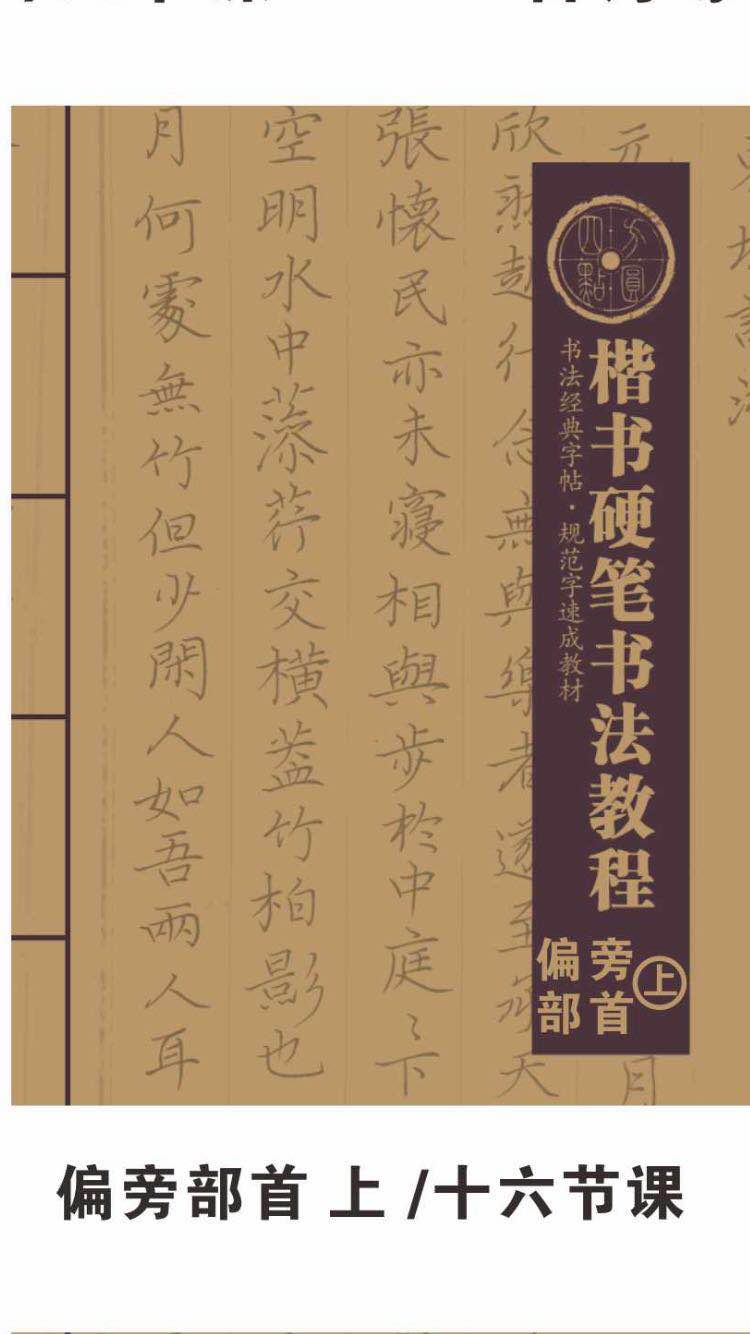 元
月
欣
張懷民亦未寢相與步於中庭ミ下
空明水中藻荇交橫蓋竹柏影也
月何處無竹但少閑人如吾兩人耳
方圓
四點
楷书硬笔书法教程
书法经典字帖·规范字速成教材
偏旁
部首
上
偏旁部首 上 /十六节课